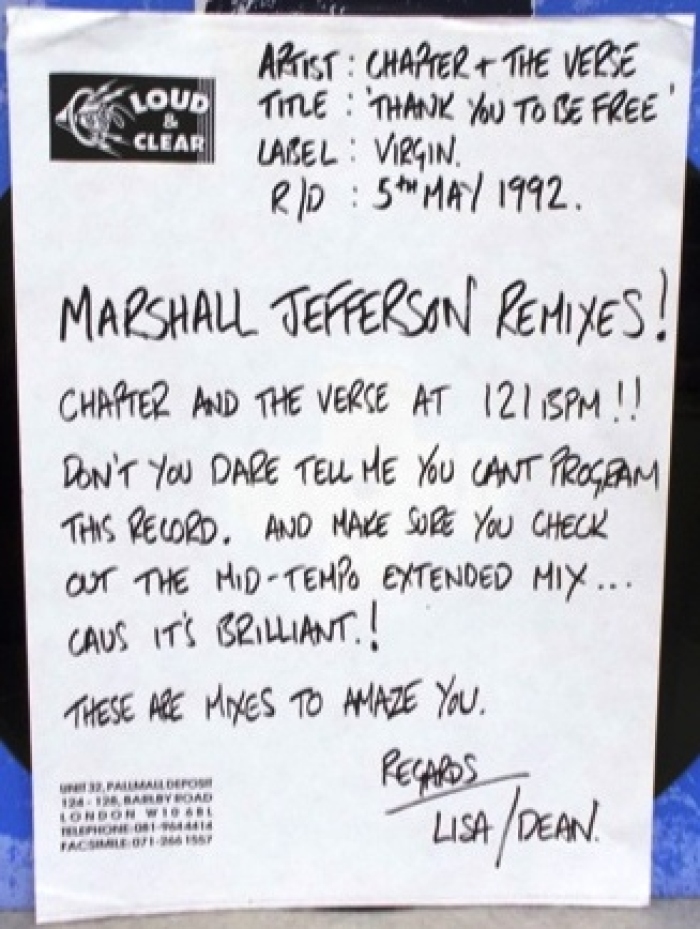 LOUD
&
CLEAR
ARTIST : CHAPTER + THE VERSE
TITLE : 'THANK YOU TO BE FREE'
LABEL : VIRGIN.
R/D : 5TH MAY 1992.
MARSHALL JEFFERSON REMIXES!
CHAPTER AND THE VERSE AT 121 BPM!!
DON'T YOU DARE TELL ME YOU CANT PROGRAM
THIS RECORD. AND MAKE SURE YOU CHECK
OUT THE MID-TEMPO EXTENDED MIX...
CAUS IT'S BRILLIANT.!
THESE ARE MIXES TO AMAZE YOU.
REGARDS
LISA/DEAN.
UNIT 32, PALLMALL DEPOSIT
124 - 128, BARLBY ROAD
LONDON W10 6BL
TELEPHONE: 081-964 4414
FACSIMILE: 071-266 1557